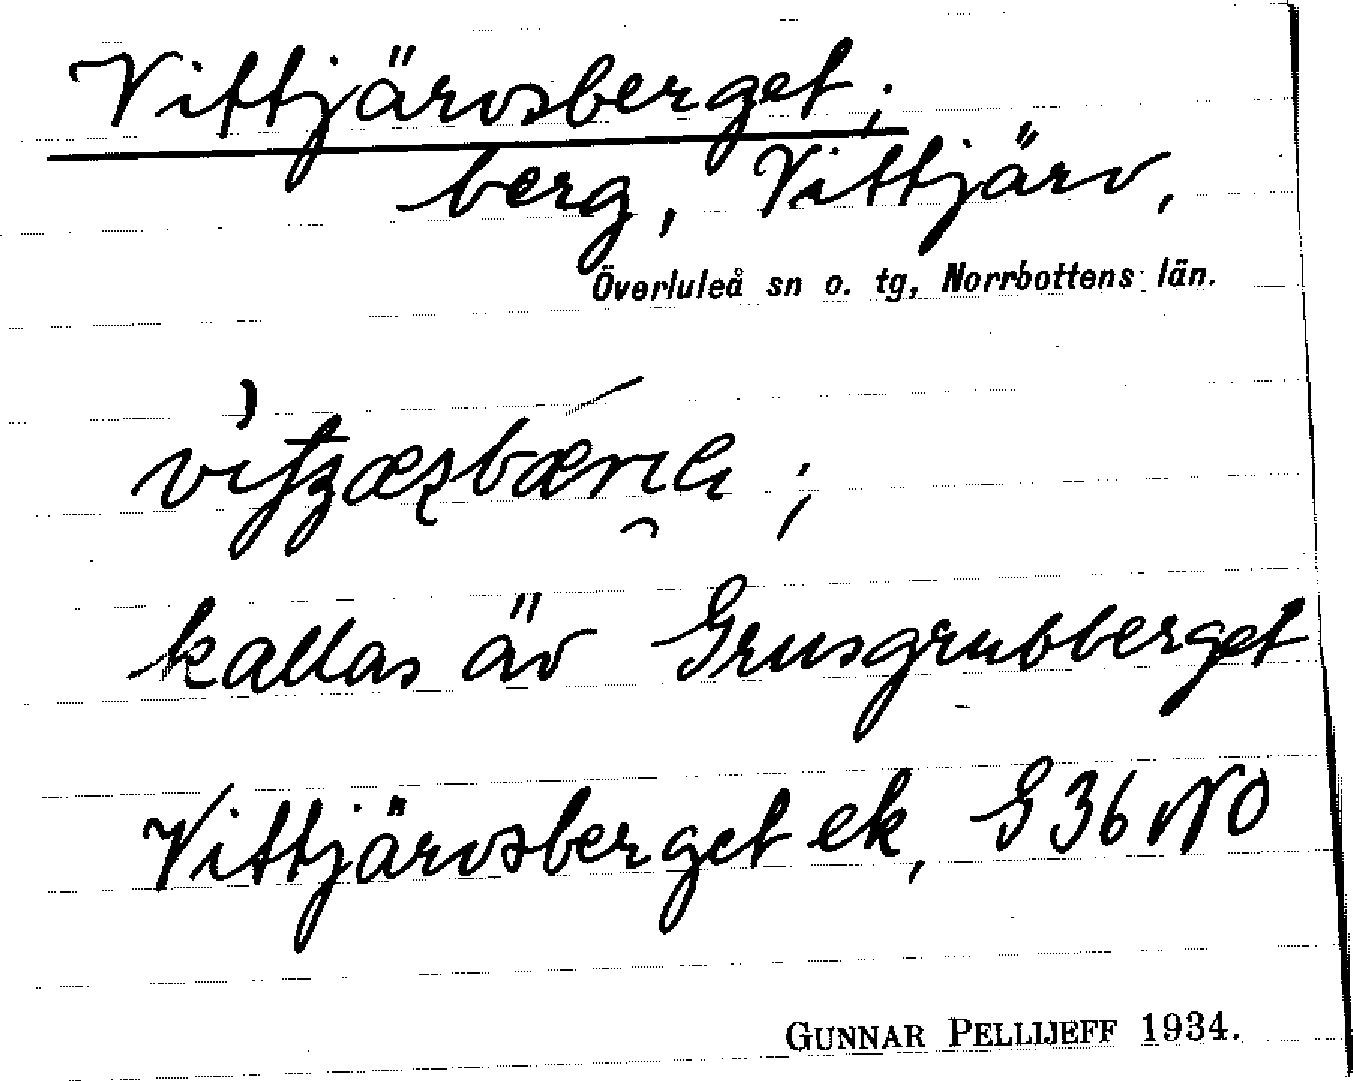 Vittjärvsberget;
berg, Vittjärv,
Överluleå sn o. tg, Norrbottens län.
kallas äv Grusgrubberget
Vittjärvsberget ek, G 36 NO
GUNNAR PELLIJEFF 1934.